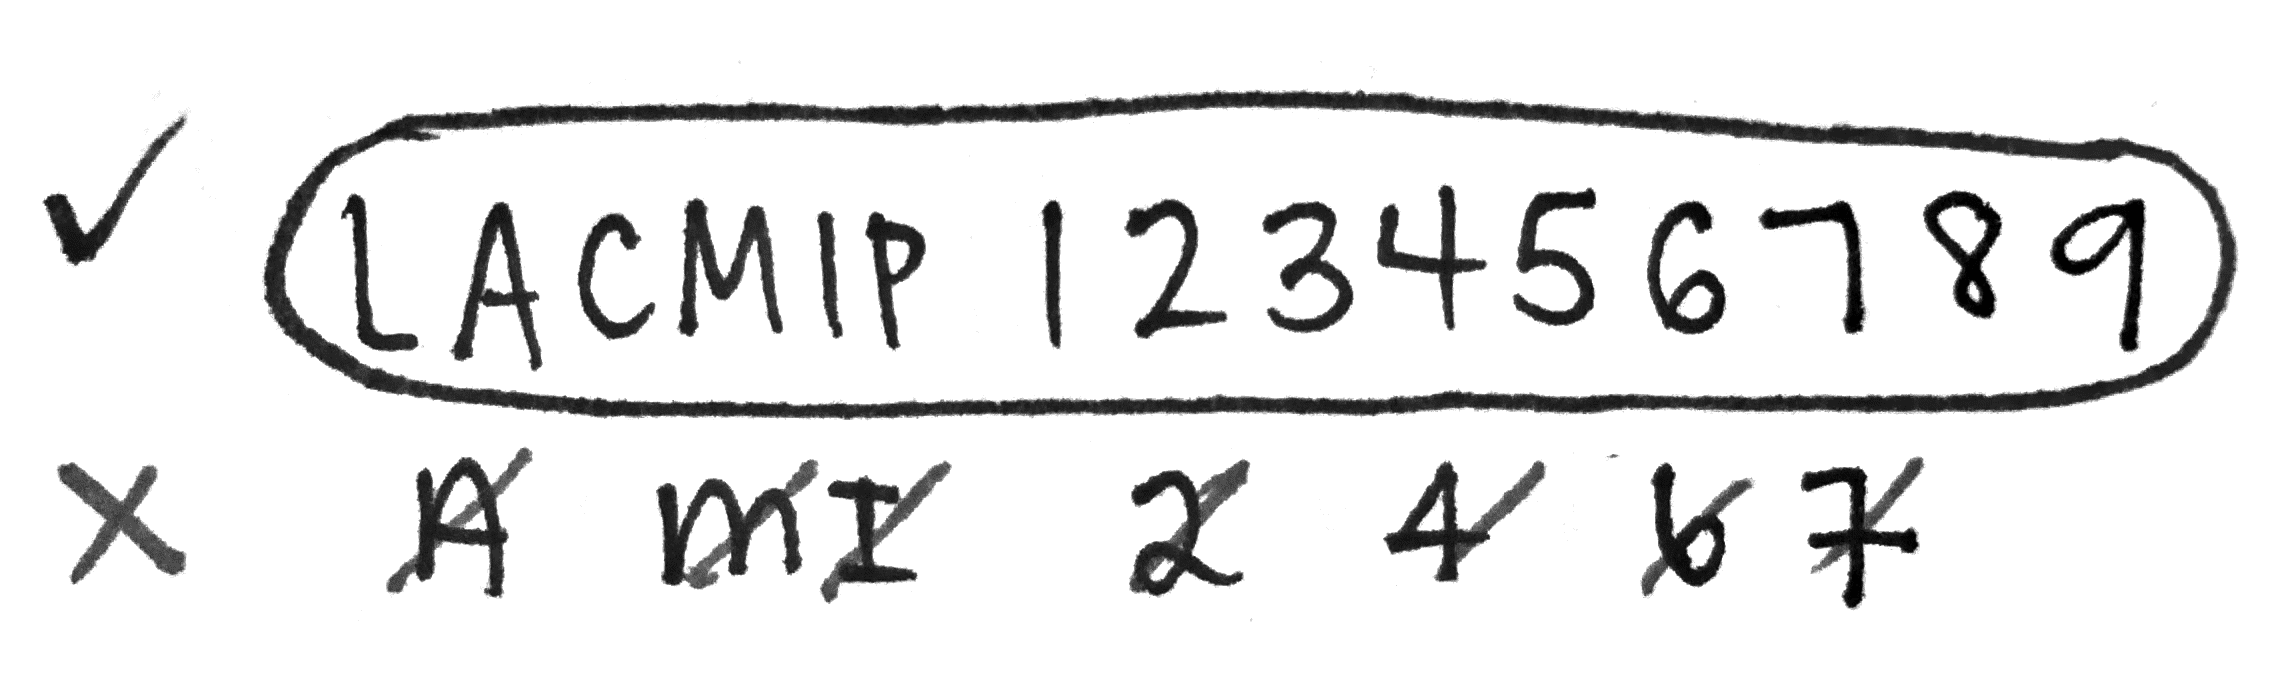 LACMIP 123456789
A m I 2 4 6 7